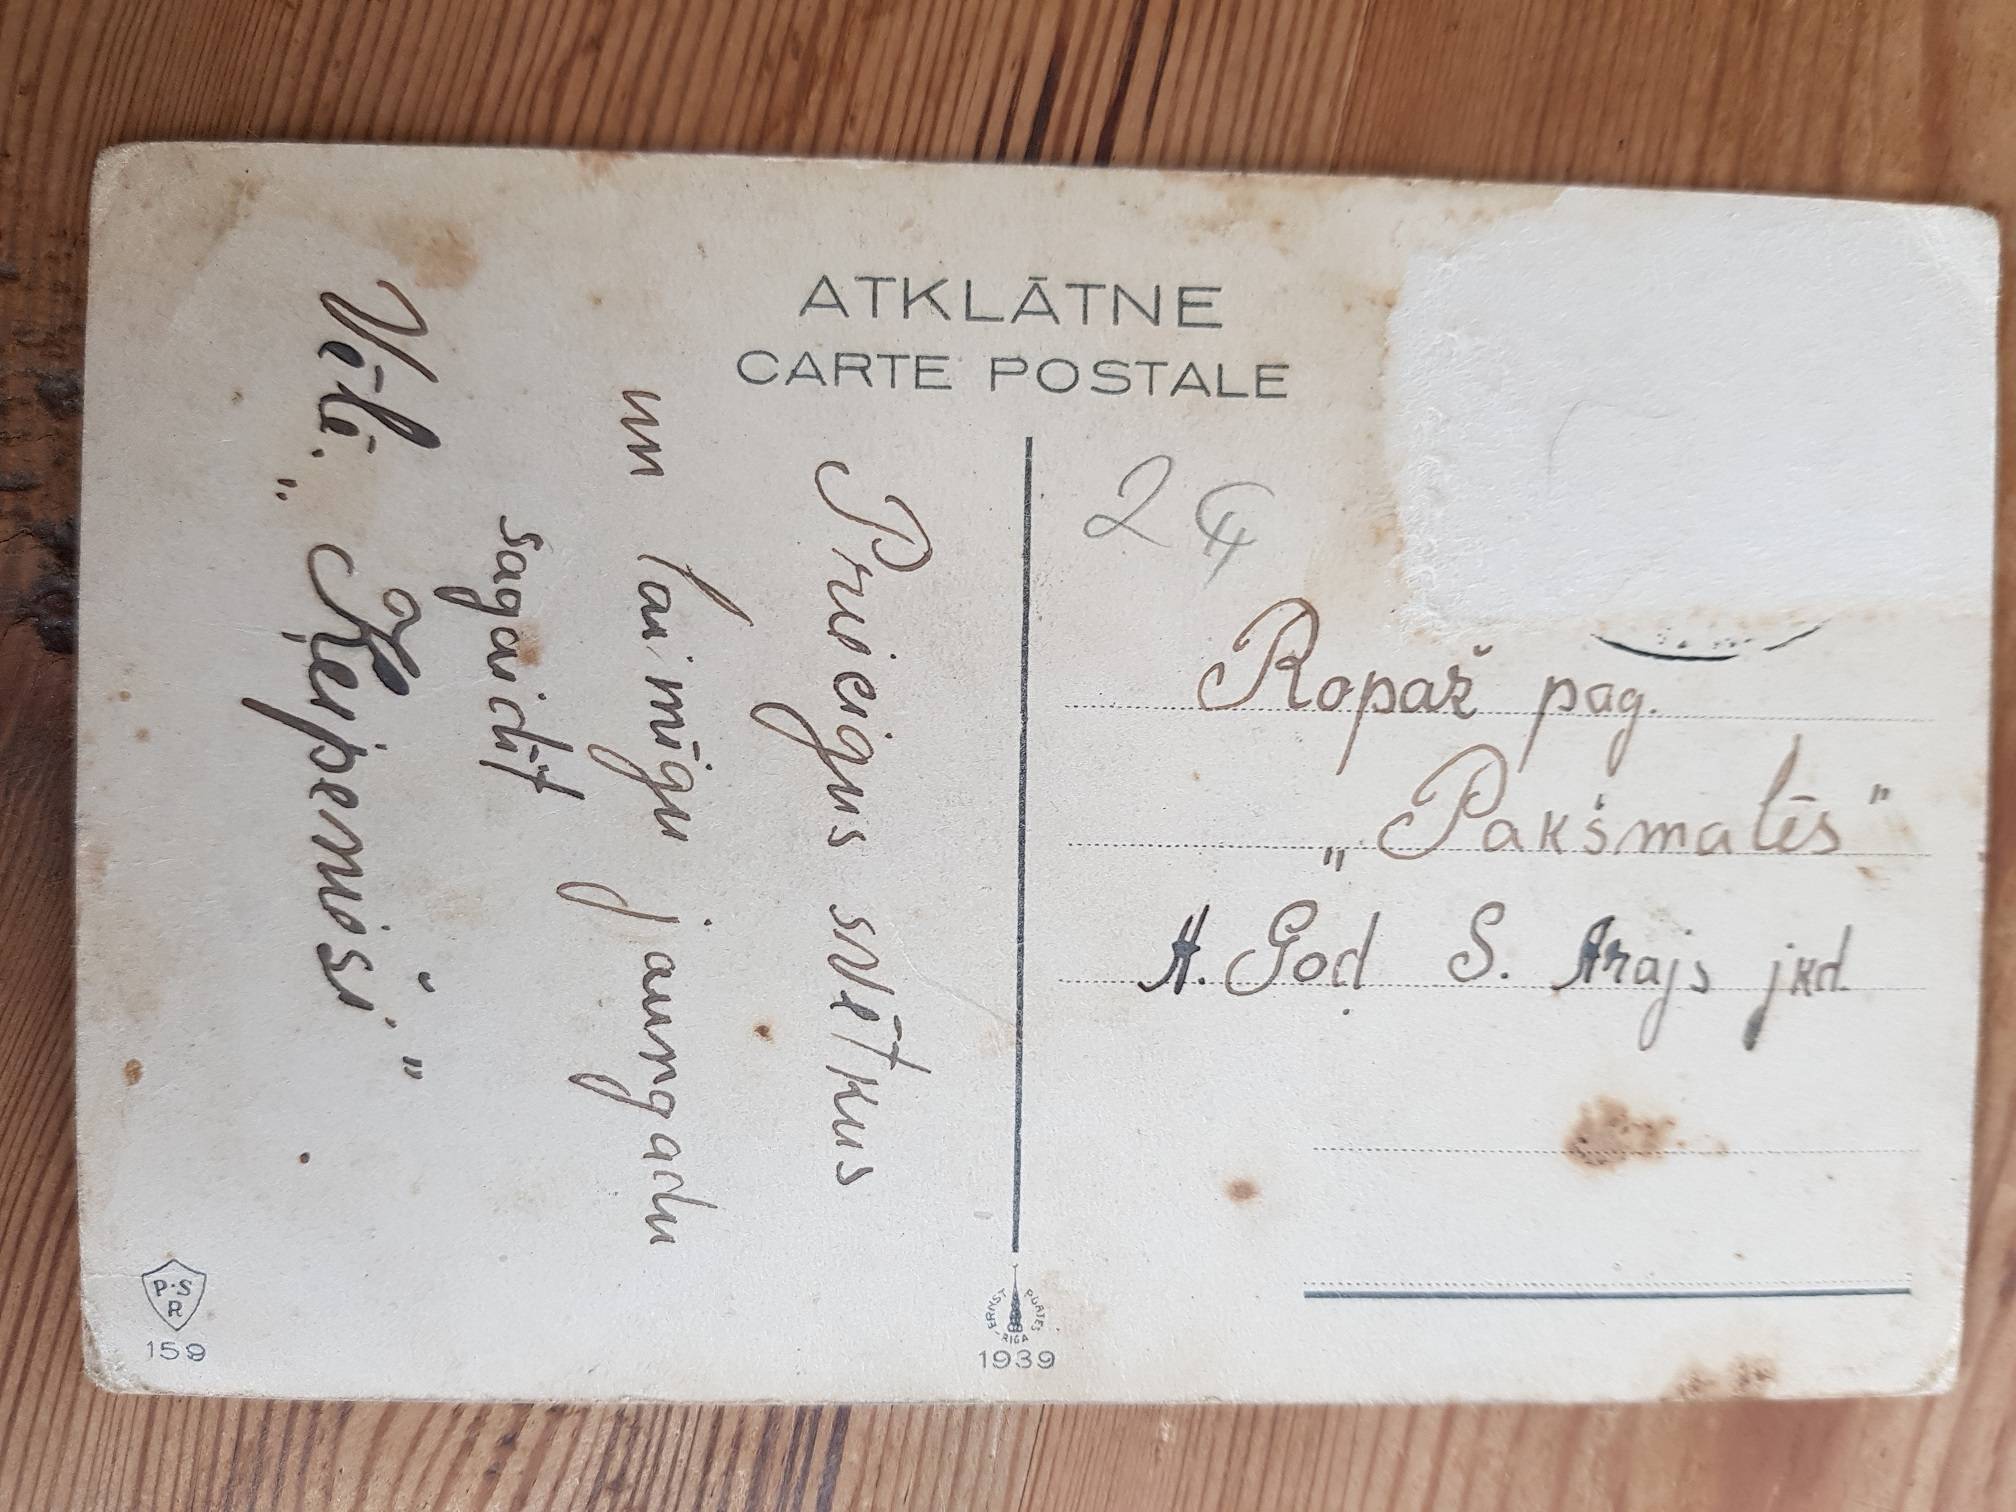 ATKLĀTNE
CARTE POSTALE
Priecigus svētkus
un laimīgu jaungadu
sagaidīt
Vēlē. „Ķeipemieši."
Ropaž pag.
„Pakšmatēs"
A. God S. Arajs jkd.
P·S
R
159
ERNST PŪRIŅŠ
RIGA
1939